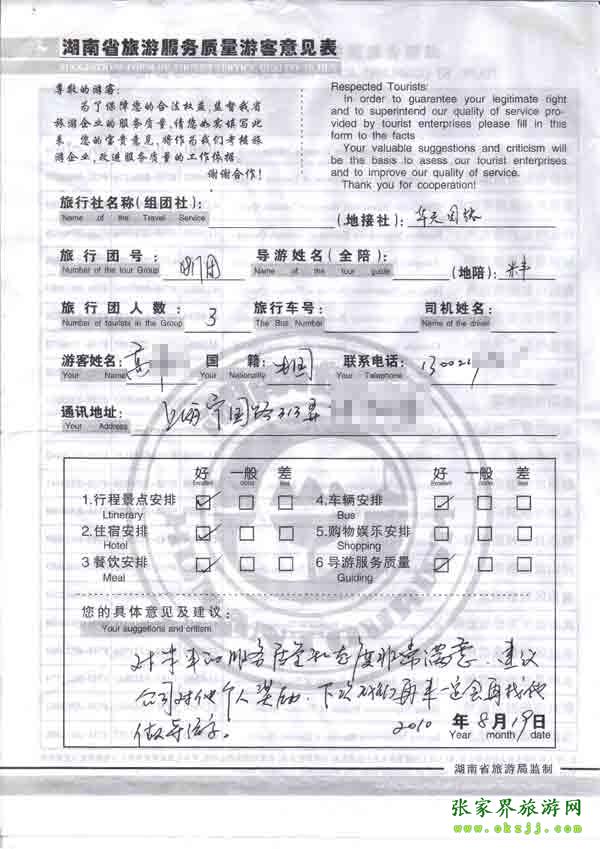 湖南省旅游服务质量游客意见表
尊敬的游客：
为了保障您的合法权益，监督我省
旅游企业的服务质量，请您如实填写此
表。您的宝贵意见，将作为我们考核旅
游企业，改进服务质量的工作依据。
谢谢合作！
Respected Tourists:
In order to guarantee your legitimate right
and to superintend our quality of service pro-
vided by tourist enterprises please fill in this
form to the facts
Your valuable suggestions and criticism will
be the basis to asess our tourist enterprises
and to improve our quality of service.
Thank you for cooperation!
旅行社名称（组团社）： （地接社）：华天国旅
Name of the Travel Service
旅行团号： 导游姓名（全陪） （地陪）：
Number of the tour Group Name of the tour guide
旅行团人数： 3 旅行车号： 司机姓名：
Number of tourists in the Group The Bus Number Name of the driver
游客姓名： 国籍：中国 联系电话：
Your Name Your Nationality Your Telaphone
通讯地址：上海宁国路313弄
Your Address
好 一般 差 好 一般 差
1.行程景点安排 4.车辆安排
Ltinerary Bus
2.住宿安排 5.购物娱乐安排
Hotel Shopping
3餐饮安排 6导游服务质量
Meal Guiding
您的具体意见及建议：
Your suggetions and critism
对 服务质量和态度非常满意、建议
公司对他个人奖励、下次我们再来一定会再找他
做导游。
2010 年 8 月 19 日
Year month date
湖南省旅游局监制
张家界旅游网
www.okzjj.com